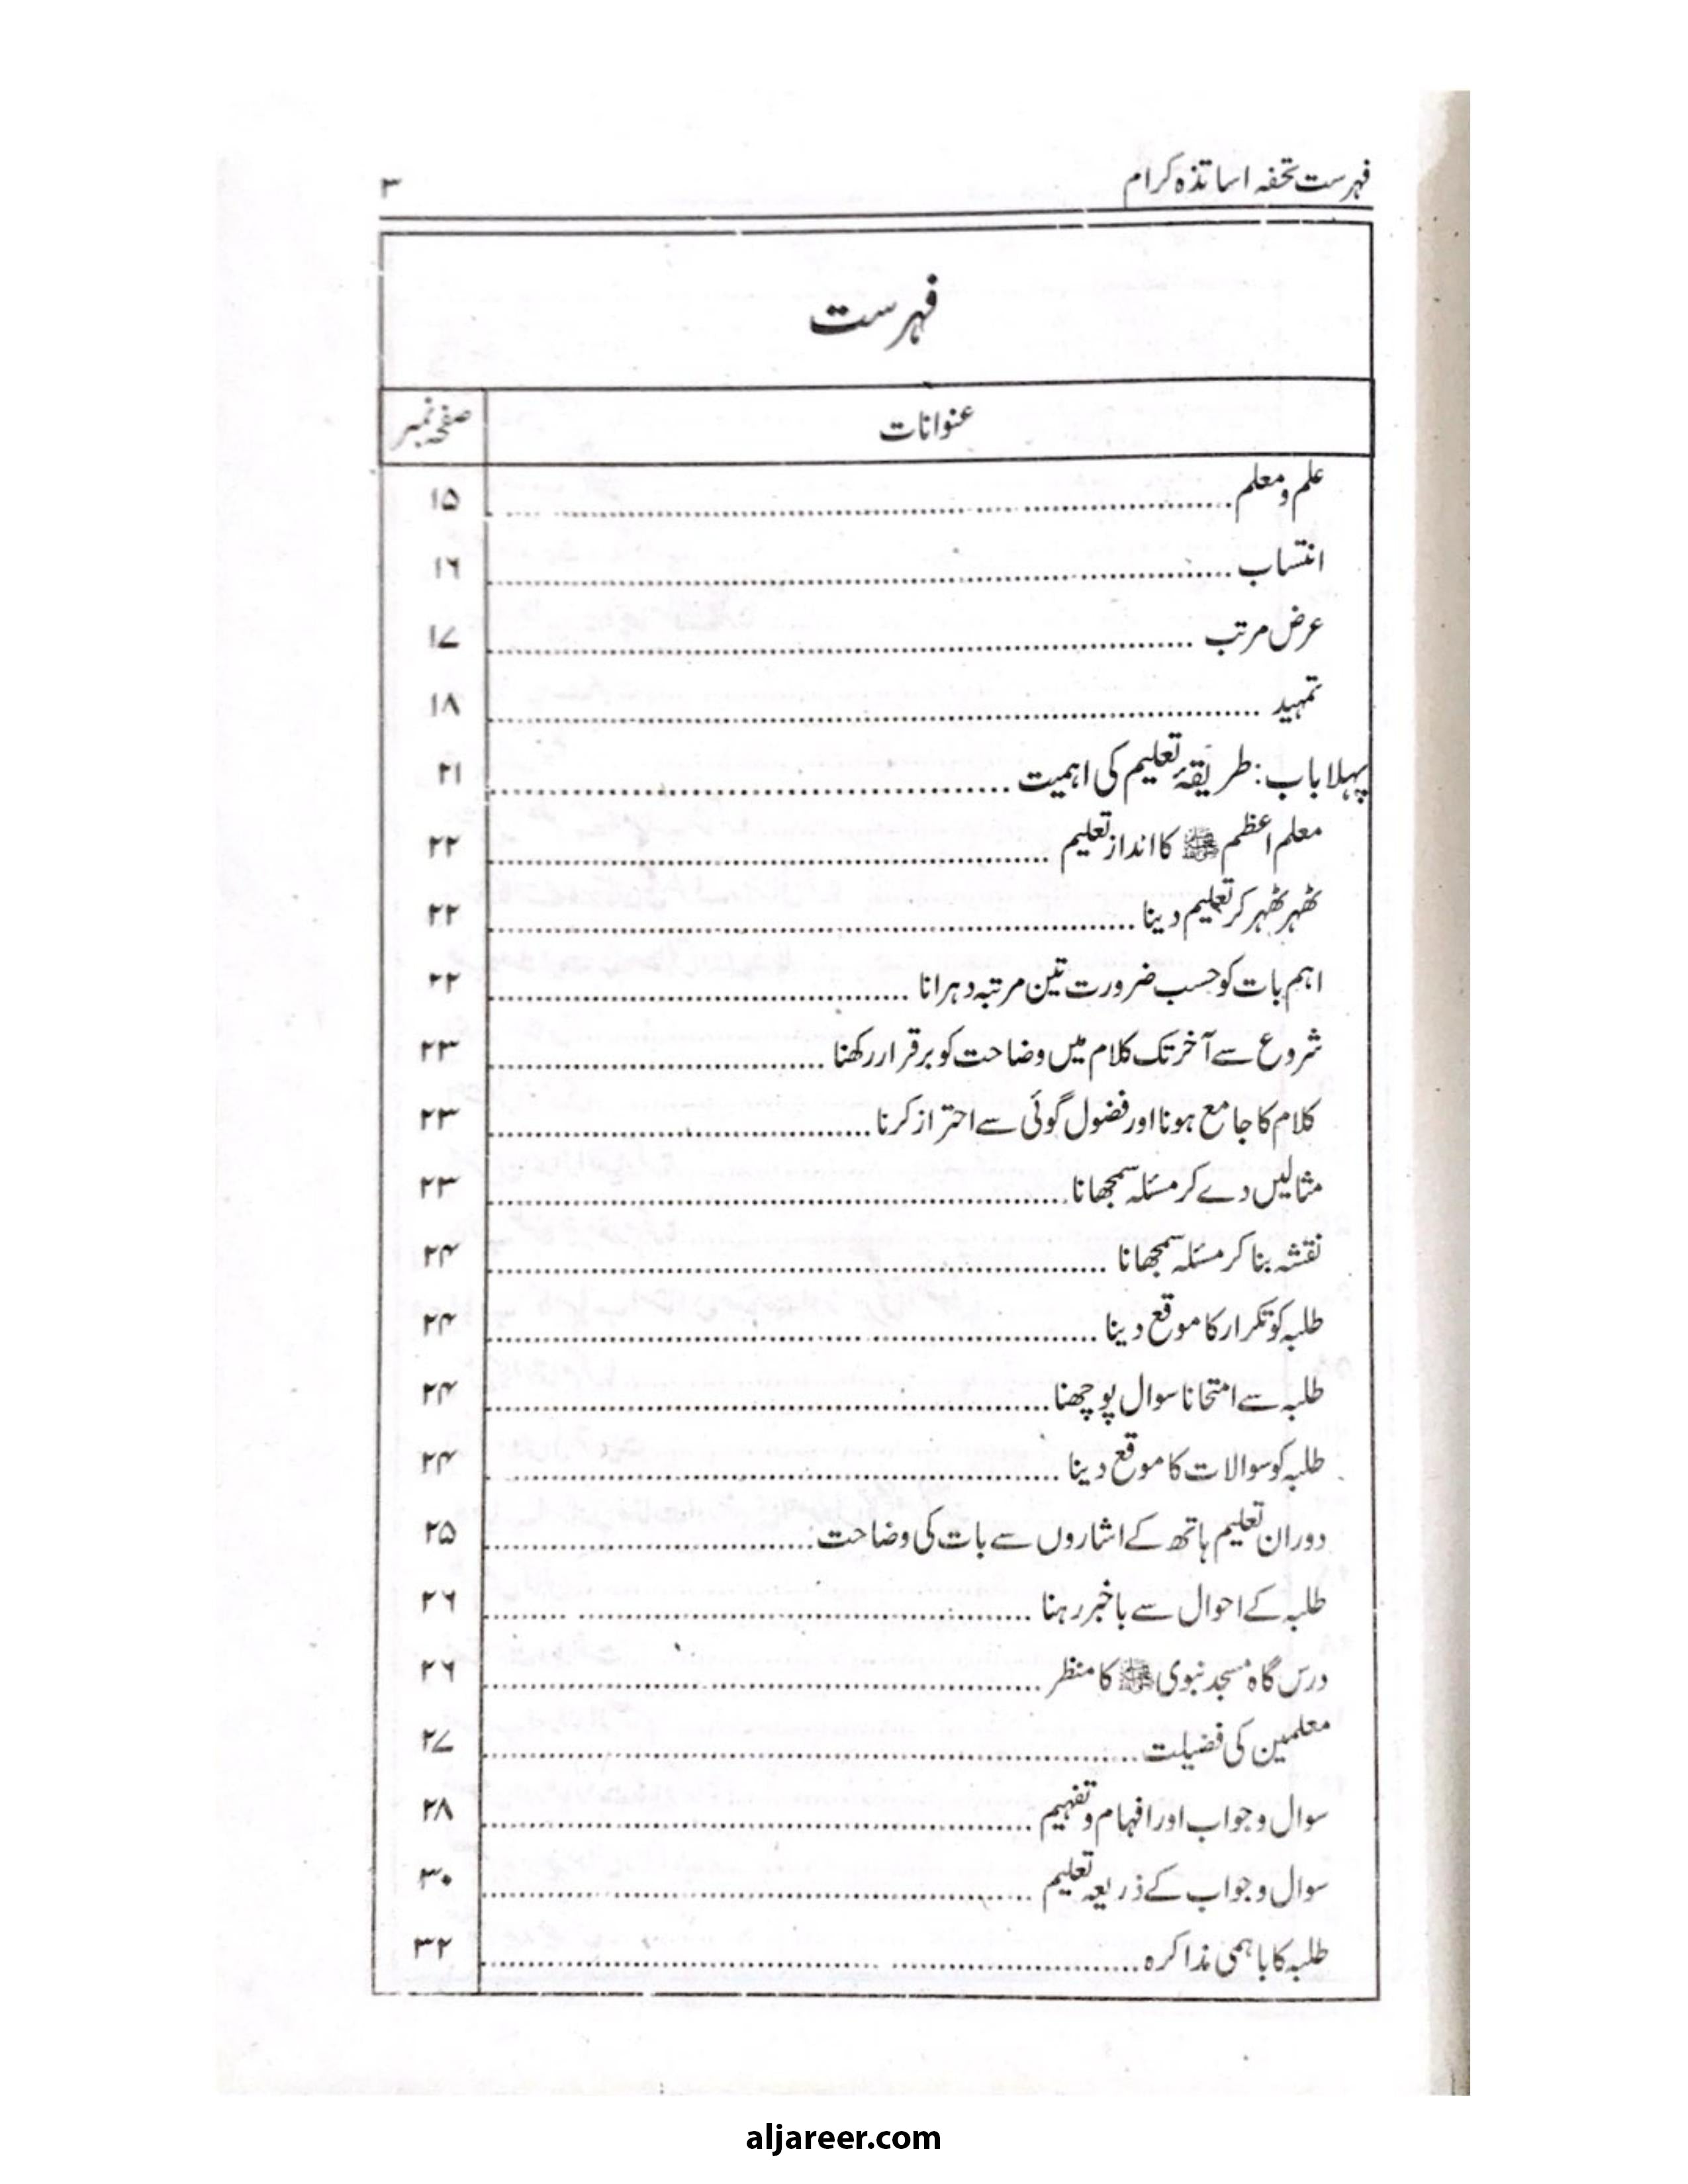 فہرست تحفہ اساتذہ کرام ۳
فہرست
عنوانات صفحہ نمبر
علم و معلم ........ ۱۵
انتساب ........ ۱۶
عرض مرتب ........ ۱۷
تمہید ........ ۱۸
پہلا باب: طریقۂ تعلیم کی اہمیت ........ ۲۱
معلم اعظم ﷺ کا انداز تعلیم ........ ۲۲
ٹھہر ٹھہر کر تعلیم دینا ........ ۲۲
اہم بات کو حسب ضرورت تین مرتبہ دہرانا ........ ۲۲
شروع سے آخر تک کلام میں وضاحت کو برقرار رکھنا ........ ۲۳
کلام کا جامع ہونا اور فضول گوئی سے احتراز کرنا ........ ۲۳
مثالیں دے کر مسئلہ سمجھانا ........ ۲۳
نقشہ بنا کر مسئلہ سمجھانا ........ ۲۴
طلبہ کو تکرار کا موقع دینا ........ ۲۴
طلبہ سے امتحانا سوال پوچھنا ........ ۲۴
طلبہ کو سوالات کا موقع دینا ........ ۲۴
دوران تعلیم ہاتھ کے اشاروں سے بات کی وضاحت ........ ۲۵
طلبہ کے احوال سے باخبر رہنا ........ ۲۶
درس گاہ مسجد نبوی ﷺ کا منظر ........ ۲۶
معلمین کی فضیلت ........ ۲۷
سوال و جواب اور افہام و تفہیم ........ ۲۸
سوال و جواب کے ذریعہ تعلیم ........ ۳۰
طلبہ کا باہمی مذاکرہ ........ ۳۲
aljareer.com